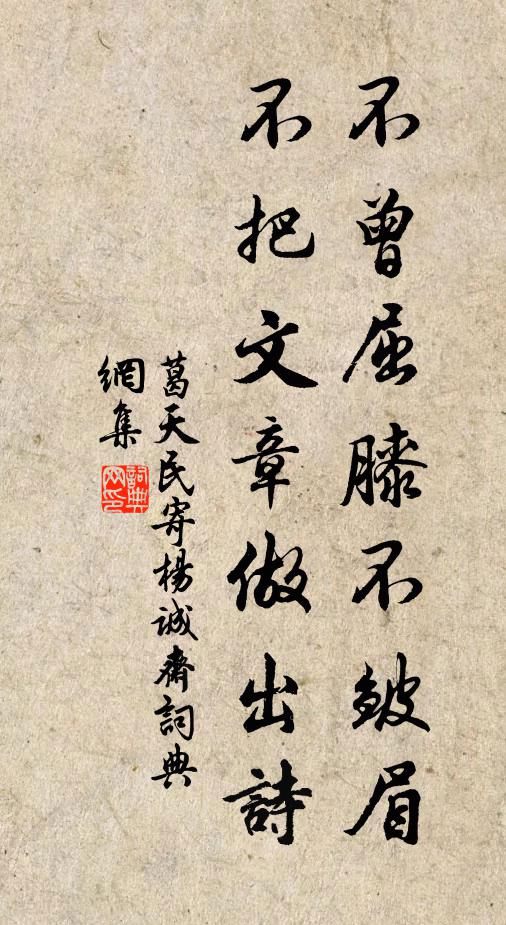 不曾屈膝不皺眉
不把文章做出詩
葛天民寄楊誠齋詞典
網集
詞典網印